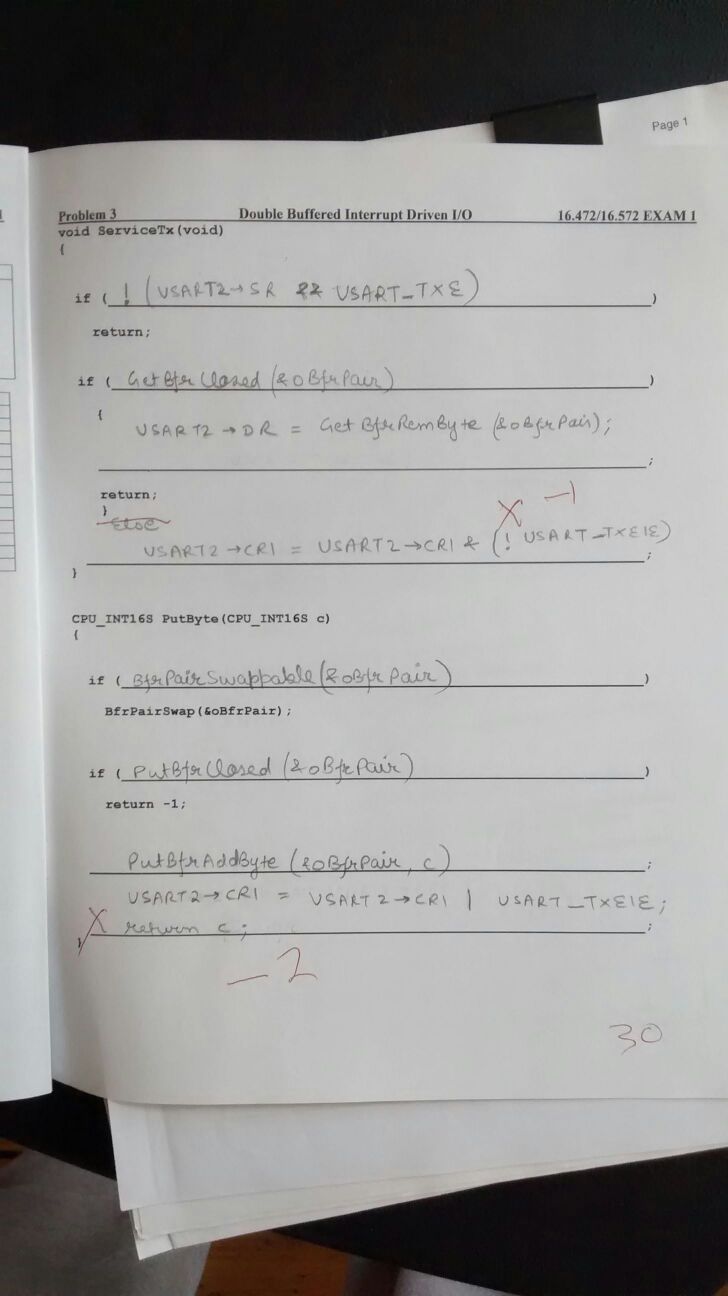 Page 1
Problem 3 Double Buffered Interrupt Driven I/O 16.472/16.572 EXAM 1
void ServiceTx(void)
{
if ( ! (USART2→SR && USART_TXE) )
return;
if ( GetBfrClosed (&oBfrPair) )
{
USART2→DR = GetBfrRemByte (&oBfrPair);
;
return;
}
X -1
Else
USART2→CR1 = USART2→CR1 & (! USART_TXEIE)
;
}
CPU_INT16S PutByte(CPU_INT16S c)
{
if ( BfrPairSwappable (&oBfrPair) )
BfrPairSwap(&oBfrPair);
if ( PutBfrClosed (&oBfrPair) )
return -1;
PutBfrAddByte (&oBfrPair, c) ;
USART2→CR1 = USART2→CR1 | USART_TXEIE;
X return c; ;
}
-2
30